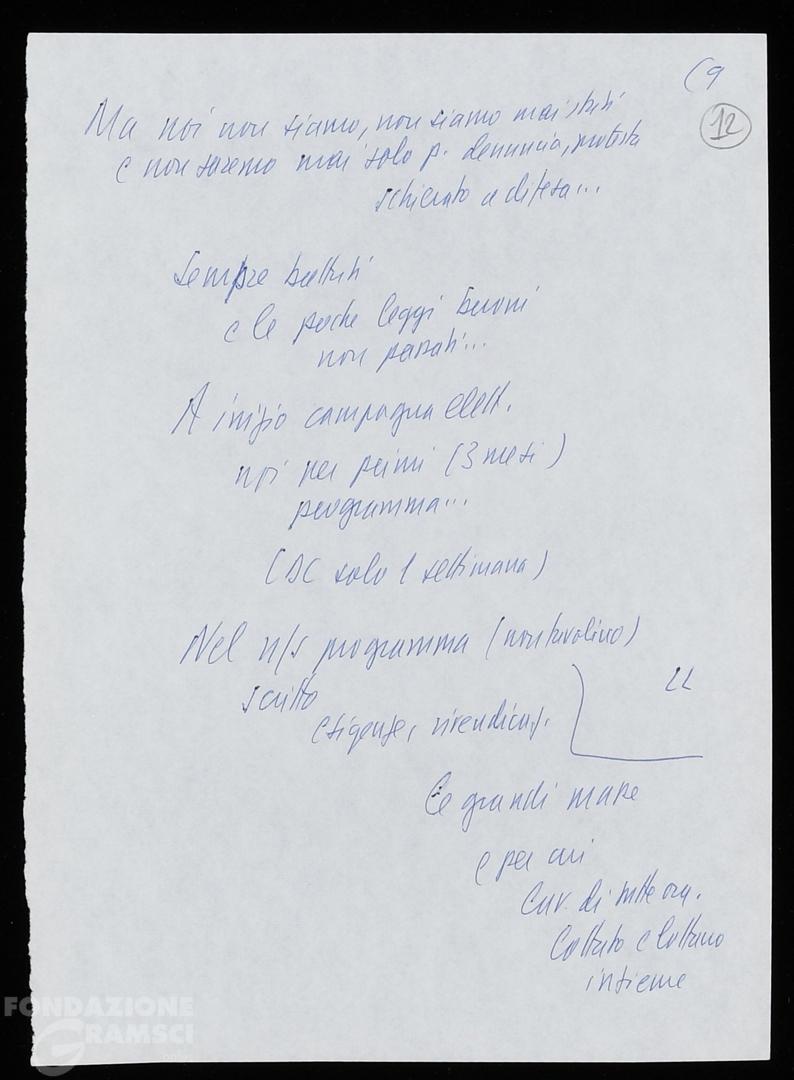 (9
12
Ma noi non siamo, non siamo mai stati
e non saremo mai solo p. denuncia, protesta
schierato a difesa...
Sempre battuti
e le poche leggi buoni
non passati...
A inizio campagna elett.
noi per primi (3 mesi)
programma...
(DC solo 1 settimana)
Nel n/s programma (non tavolino)
scritto
esigenze, rivendicaz.
LL
Le grandi masse
e per cui
Lav. di tutte
Lottato e lottano
insieme
FONDAZIONE
GRAMSCI